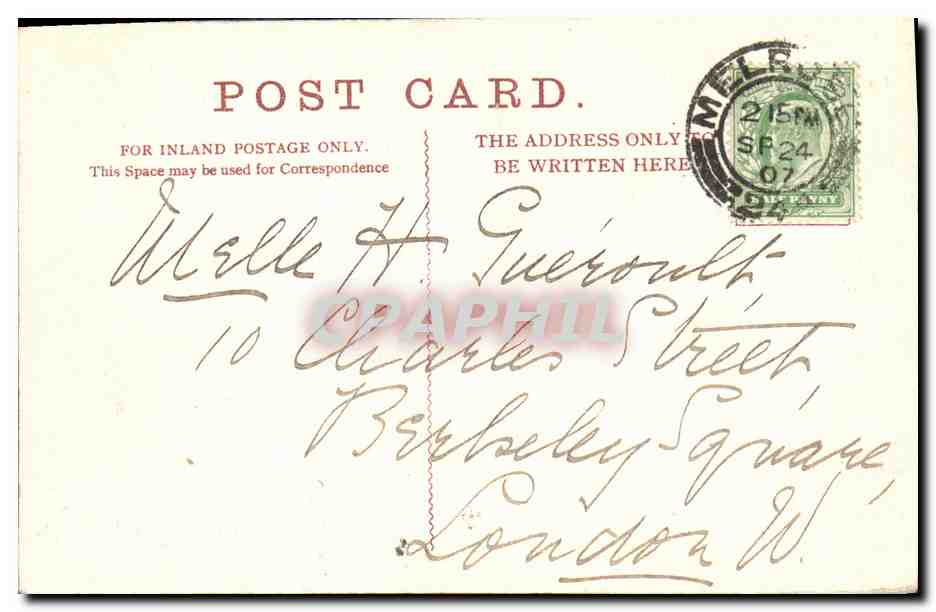 POST CARD.
FOR INLAND POSTAGE ONLY.
This Space may be used for Correspondence
THE ADDRESS ONLY TO
BE WRITTEN HERE
MELROSE
2 15 PM
SP 24
07
24
HALF PENNY
Melle H. Guéroult,
10 Charles Street,
Berkeley Square,
London W.
CPAPHIL